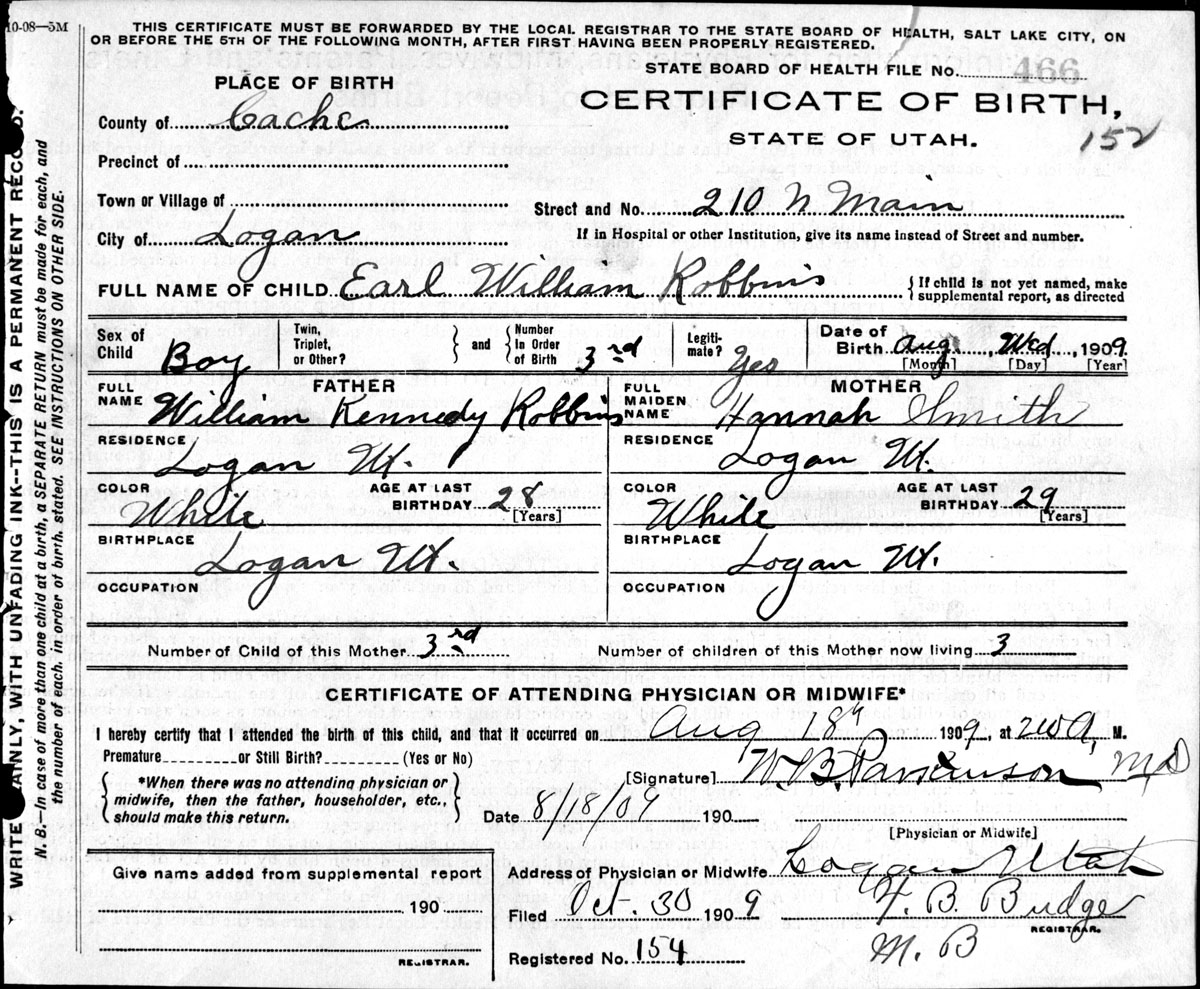 10-08—5M
THIS CERTIFICATE MUST BE FORWARDED BY THE LOCAL REGISTRAR TO THE STATE BOARD OF HEALTH, SALT LAKE CITY, ON
OR BEFORE THE 5TH OF THE FOLLOWING MONTH, AFTER FIRST HAVING BEEN PROPERLY REGISTERED.
STATE BOARD OF HEALTH FILE NO. 466
CERTIFICATE OF BIRTH,
STATE OF UTAH.
152
PLACE OF BIRTH
County of Cache
Precinct of
Town or Village of
City of Logan
Street and No. 210 N Main
If in Hospital or other Institution, give its name instead of Street and number.
FULL NAME OF CHILD Earl William Robbins { If child is not yet named, make
supplemental report, as directed
Sex of Child Boy
Twin, Triplet, or Other? } and { Number In Order of Birth 3rd
Legiti-mate? Yes
Date of Birth Aug, Wed, 1909.
[Month] [Day] [Year]
FATHER
FULL NAME William Kennedy Robbins
RESIDENCE Logan Ut.
COLOR White
AGE AT LAST BIRTHDAY 28
[Years]
BIRTHPLACE Logan Ut.
OCCUPATION
MOTHER
FULL MAIDEN NAME Hannah Smith
RESIDENCE Logan Ut.
COLOR White
AGE AT LAST BIRTHDAY 29
[Years]
BIRTHPLACE Logan Ut.
OCCUPATION
Number of Child of this Mother 3rd
Number of children of this Mother now living 3
CERTIFICATE OF ATTENDING PHYSICIAN OR MIDWIFE*
I hereby certify that I attended the birth of this child, and that it occurred on Aug 18th 1909, at 2 A, M.
Premature or Still Birth? (Yes or No)
{ *When there was no attending physician or
midwife, then the father, householder, etc.,
should make this return. }
[Signature] W. B. Parkinson MD
Date 8/18/09 190
[Physician or Midwife]
Address of Physician or Midwife Logan Utah
Give name added from supplemental report
190
REGISTRAR.
Filed Oct. 30 1909
F. B. Budge
REGISTRAR.
M. B
Registered No. 154
WRITE PLAINLY, WITH UNFADING INK--THIS IS A PERMANENT RECORD.
N. B.—In case of more than one child at a birth, a SEPARATE RETURN must be made for each, and
the number of each, in order of birth, stated. SEE INSTRUCTIONS ON OTHER SIDE.